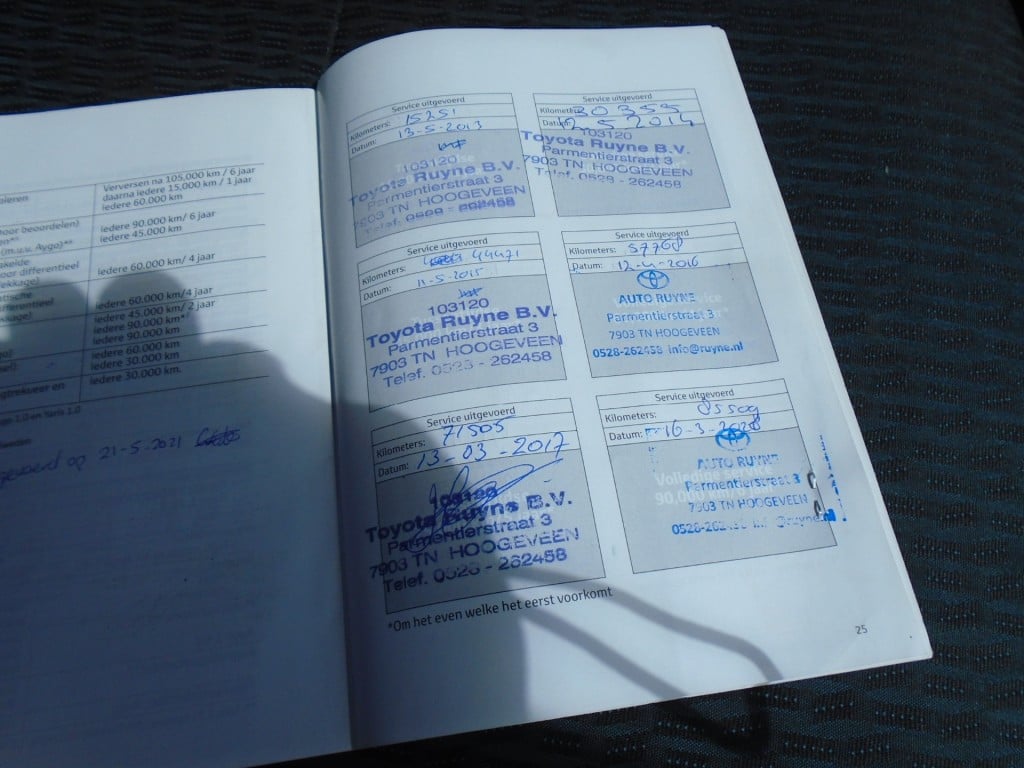 Verversen na 105.000 km / 6 jaar
daarna iedere 15.000 km / 1 jaar
iedere 60.000 km
iedere 90.000 km/ 6 jaar
iedere 45.000 km
(m.u.v. Aygo)**
iedere 60.000 km/ 4 jaar
iedere 60.000 km/4 jaar
iedere 45.000 km/ 2 jaar
iedere 90.000 km*
iedere 90.000 km
iedere 60.000 km
iedere 30.000 km
iedere 30.000 km.
en Yaris 1.0
op 21-5-2021
Service uitgevoerd
Kilometers: 15251
Datum: 13-5-2013
103120
Toyota Ruyne B.V.
Parmentierstraat 3
7903 TN HOOGEVEEN
Telef. 0528 - 262458
Service uitgevoerd
30355
Datum: 12-5-2014
103120
Toyota Ruyne B.V.
Parmentierstraat 3
7903 TN HOOGEVEEN
Telef. 0528 - 262458
Service uitgevoerd
Kilometers: 44471
Datum: 11-5-2015
103120
Toyota Ruyne B.V.
Parmentierstraat 3
7903 TN HOOGEVEEN
Telef. 0528 - 262458
Service uitgevoerd
Kilometers: 57768
Datum: 12-4-2016
AUTO RUYNE
Parmentierstraat 3
7903 TN HOOGEVEEN
0528-262458 info@ruyne.nl
Service uitgevoerd
Kilometers: 71505
Datum: 13-03-2017
103120
Toyota Ruyne B.V.
Parmentierstraat 3
7903 TN HOOGEVEEN
Telef. 0528 - 262458
Service uitgevoerd
Kilometers:
Datum: 16-3-
AUTO RUYNE
Volledige Service
Parmentierstraat 3
90.000 km/6 jaar
7903 TN HOOGEVEEN
*Om het even welke het eerst voorkomt
25